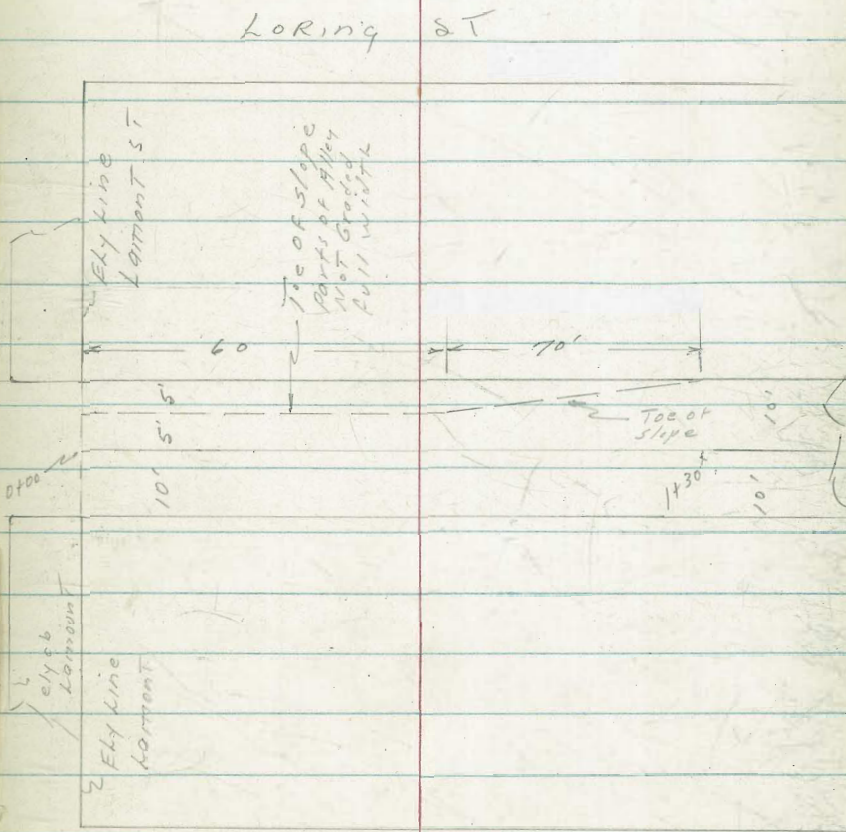 LORing ST
Ely Line
Lamont ST
Toe OF Slope
Parts of Alley
NOT Graded
Full Width
60
70'
5'
5'
10'
Toe of
Slope
10'
0+00
1+30
10'
ely cb
Lamount
Ely Line
Lamont